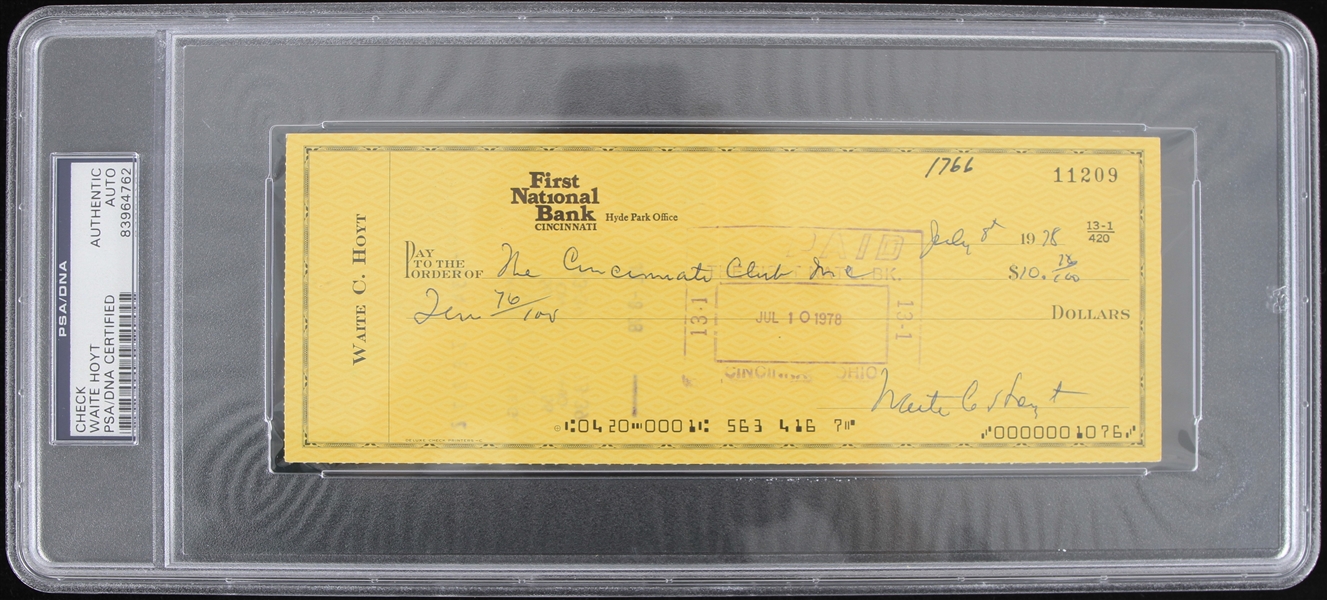 PSA/DNA
CHECK
WAITE HOYT
PSA/DNA CERTIFIED
AUTHENTIC
AUTO
83964762
WAITE C. HOYT
First
National
Bank
CINCINNATI
Hyde Park Office
1766
11209
July 8 1978
13-1
420
PAY
TO THE
ORDER OF The Cincinnati Club Inc
$10. 76/100
Ten 76/100
DOLLARS
PAID
BK.
13-1
13-1
JUL 10 1978
CINCINNATI OHIO
Waite C Hoyt
⑆0420⑉0001⑆ 563 416 7⑈
⑈0000001076⑈
DELUXE CHECK PRINTERS